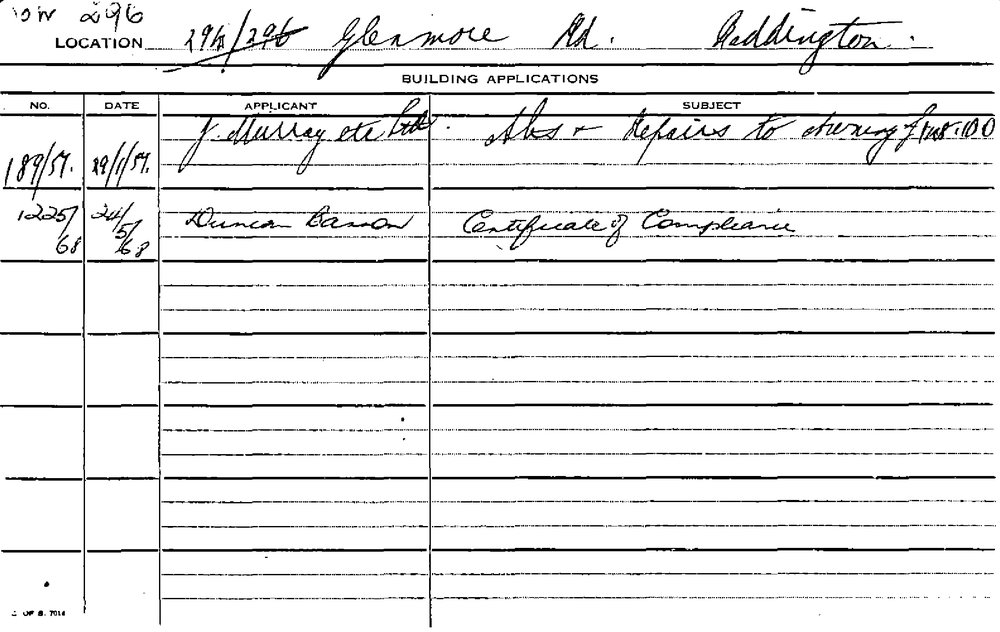 296
LOCATION 294/296 Glenmore Rd. Paddington.
BUILDING APPLICATIONS
NO. DATE APPLICANT SUBJECT
189/57. 29/1/57. J. Murray etc Alts + Repairs to
1225/68 24/5/68 Duncan Certificate of Compliance
OF S. 7014